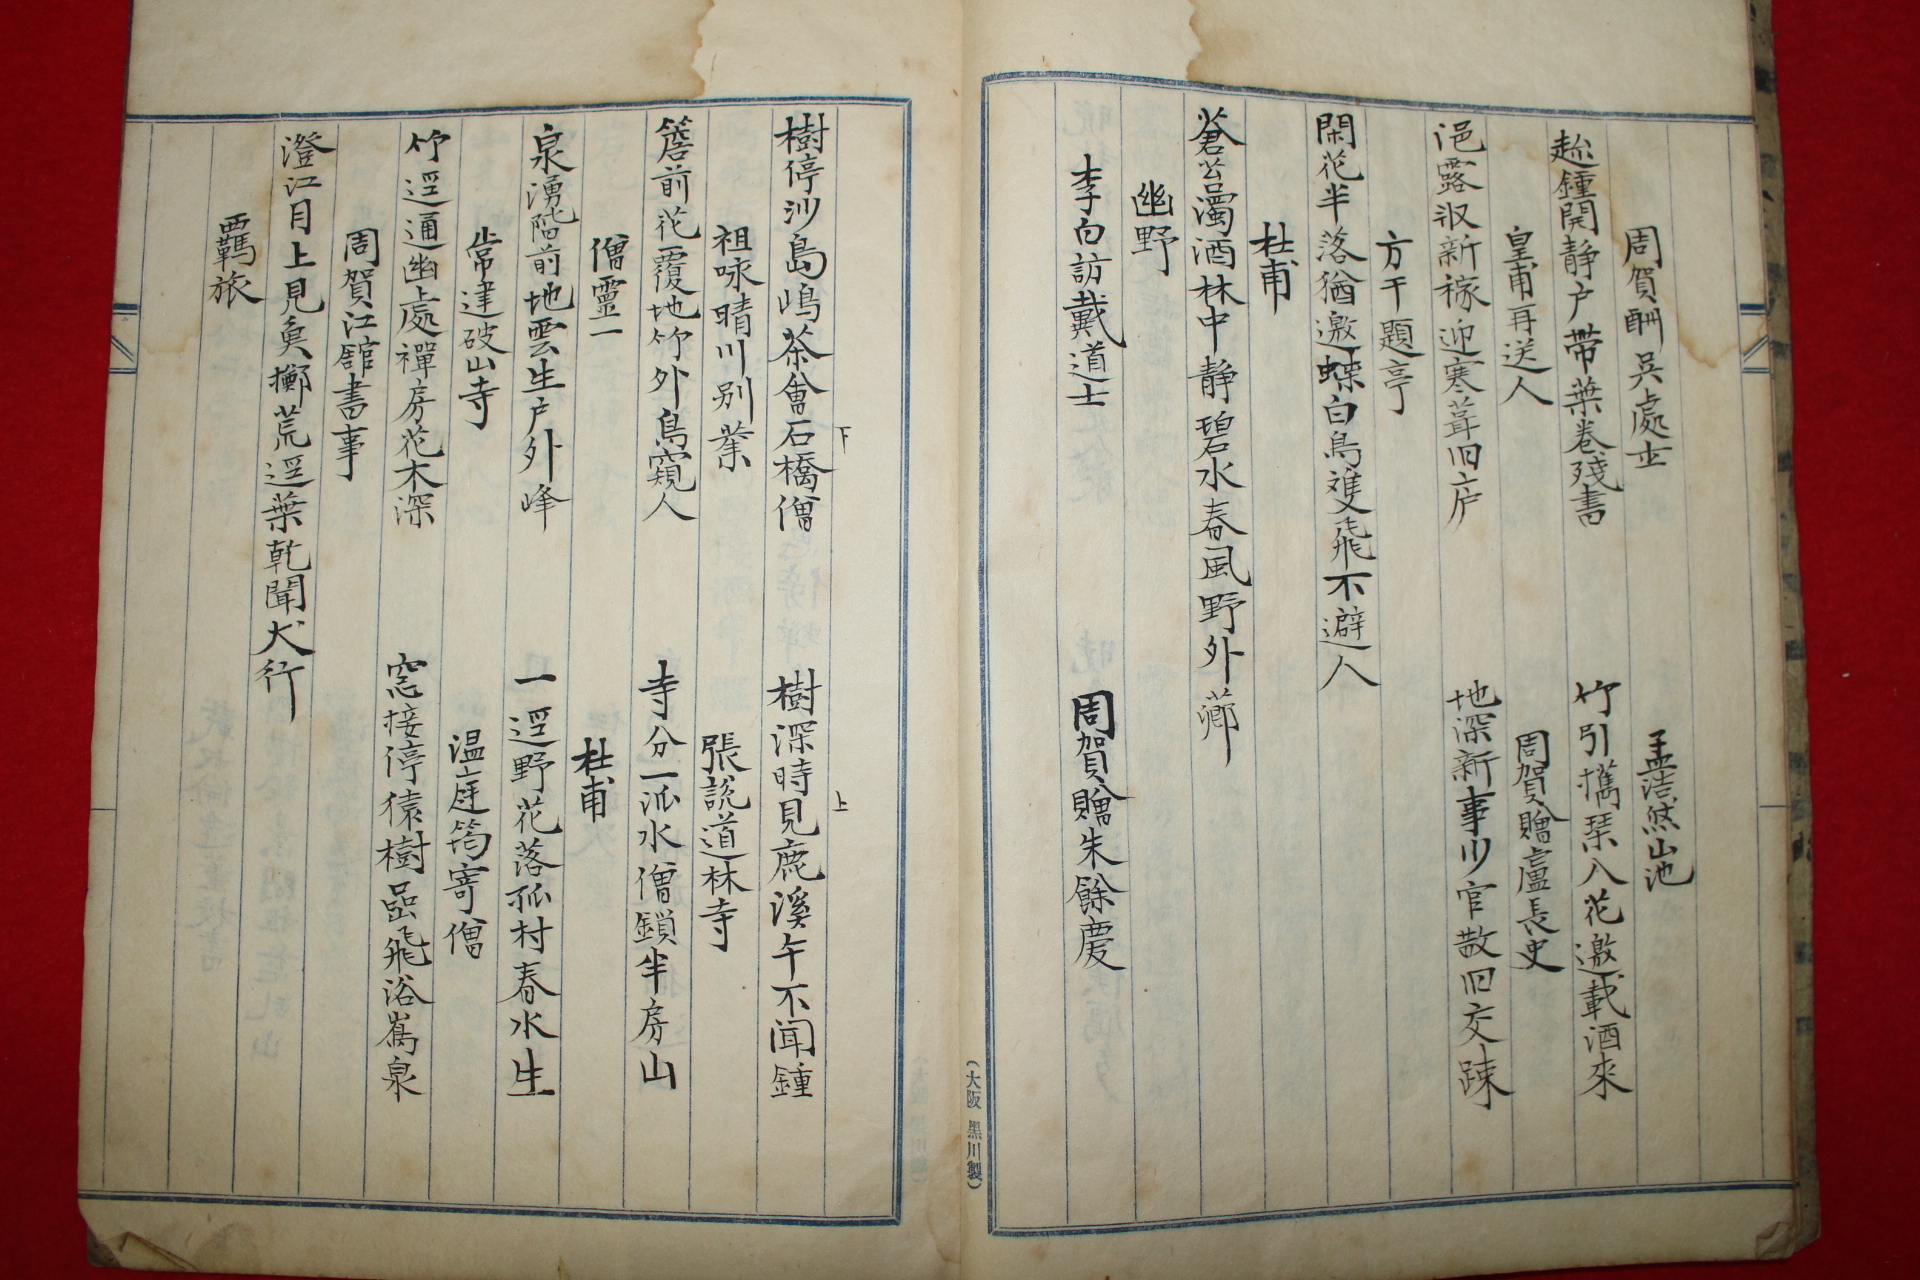 周賀酬吳處士　孟浩然山池
趁鍾開靜户帯葉卷殘書　竹引攜琹入花邀載酒來
皇甫再送人　周賀贈盧長史
浥露収新稼迎寒葺旧庐　地深新事少官散旧交踈
方干題亭
閑花半落猶邀蝶白鳥雙飛不避人
杜甫
蒼苔濁酒林中靜碧水春風野外薌
幽野
李白訪戴道士　周賀贈朱餘慶
樹停沙島嶋茶會石橋僧　樹深時見鹿溪午不闻鍾
下　上
祖咏晴川别業　張說道林寺
簷前花覆地竹外鳥窺人　寺分一派水僧鎖半房山
僧靈一　杜甫
泉湧階前地雲生户外峰　一逕野花落孤村春水生
常建破山寺　温庭筠寄僧
竹逕通幽處禪房花木深　窓接停猿樹嵒飛浴嶲泉
周賀江舘書事
澄江月上見魚擲荒逕葉乾聞犬行
覊旅
(大阪 黒川製)